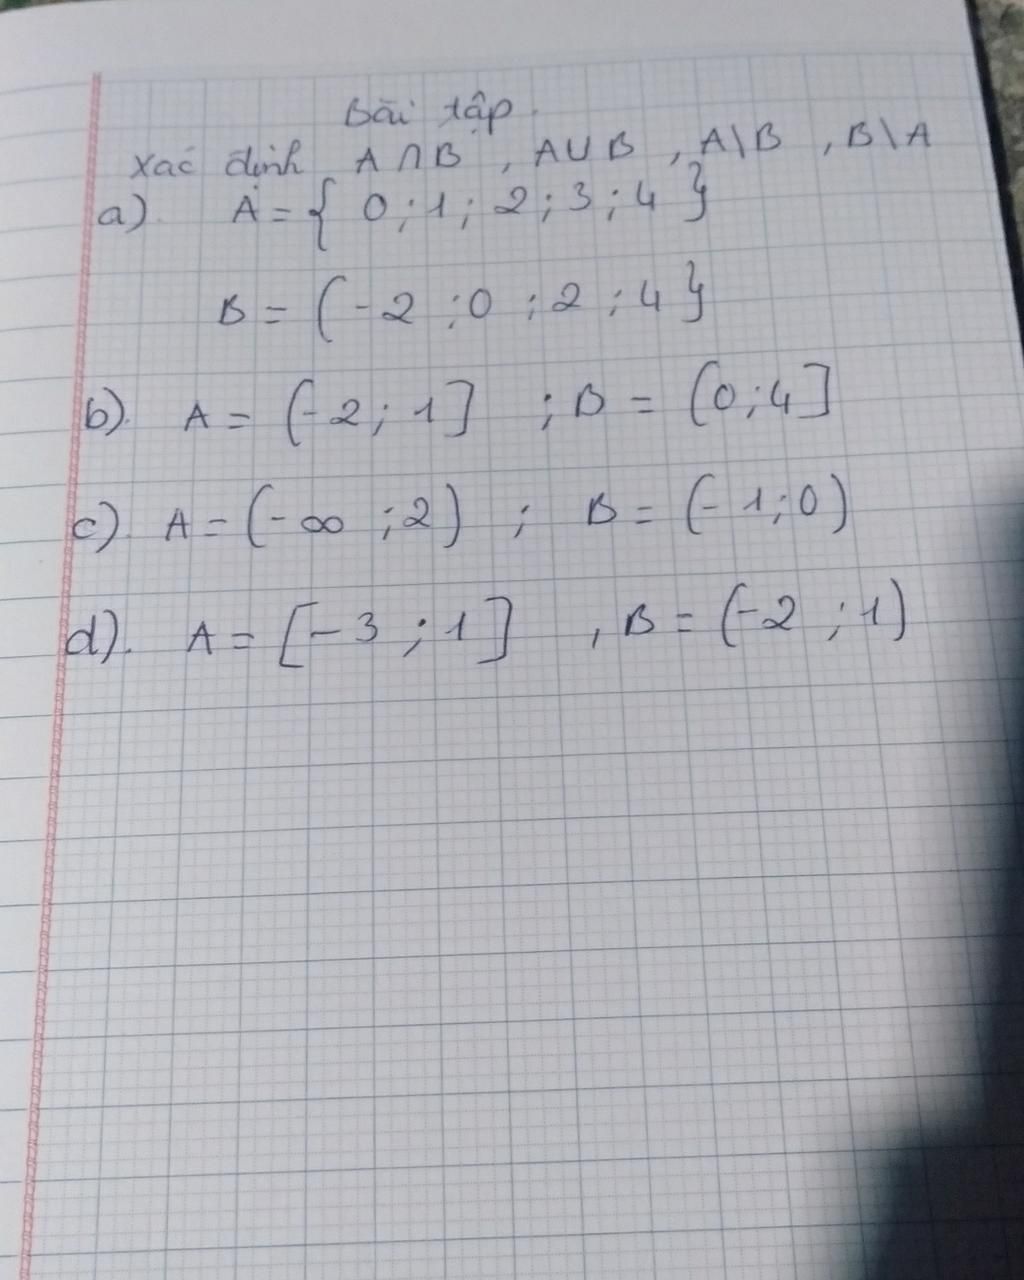 Bài tập.
Xác định A ∩ B , A ∪ B , A \ B , B \ A
a). A = { 0 ; 1 ; 2 ; 3 ; 4 }
B = ( -2 ; 0 ; 2 ; 4 }
b). A = (-2 ; 1 ] ; B = (0 ; 4 ]
c). A = (-∞ ; 2 ) ; B = (-1 ; 0 )
d). A = [ -3 ; 1 ] , B = (-2 ; 1 )